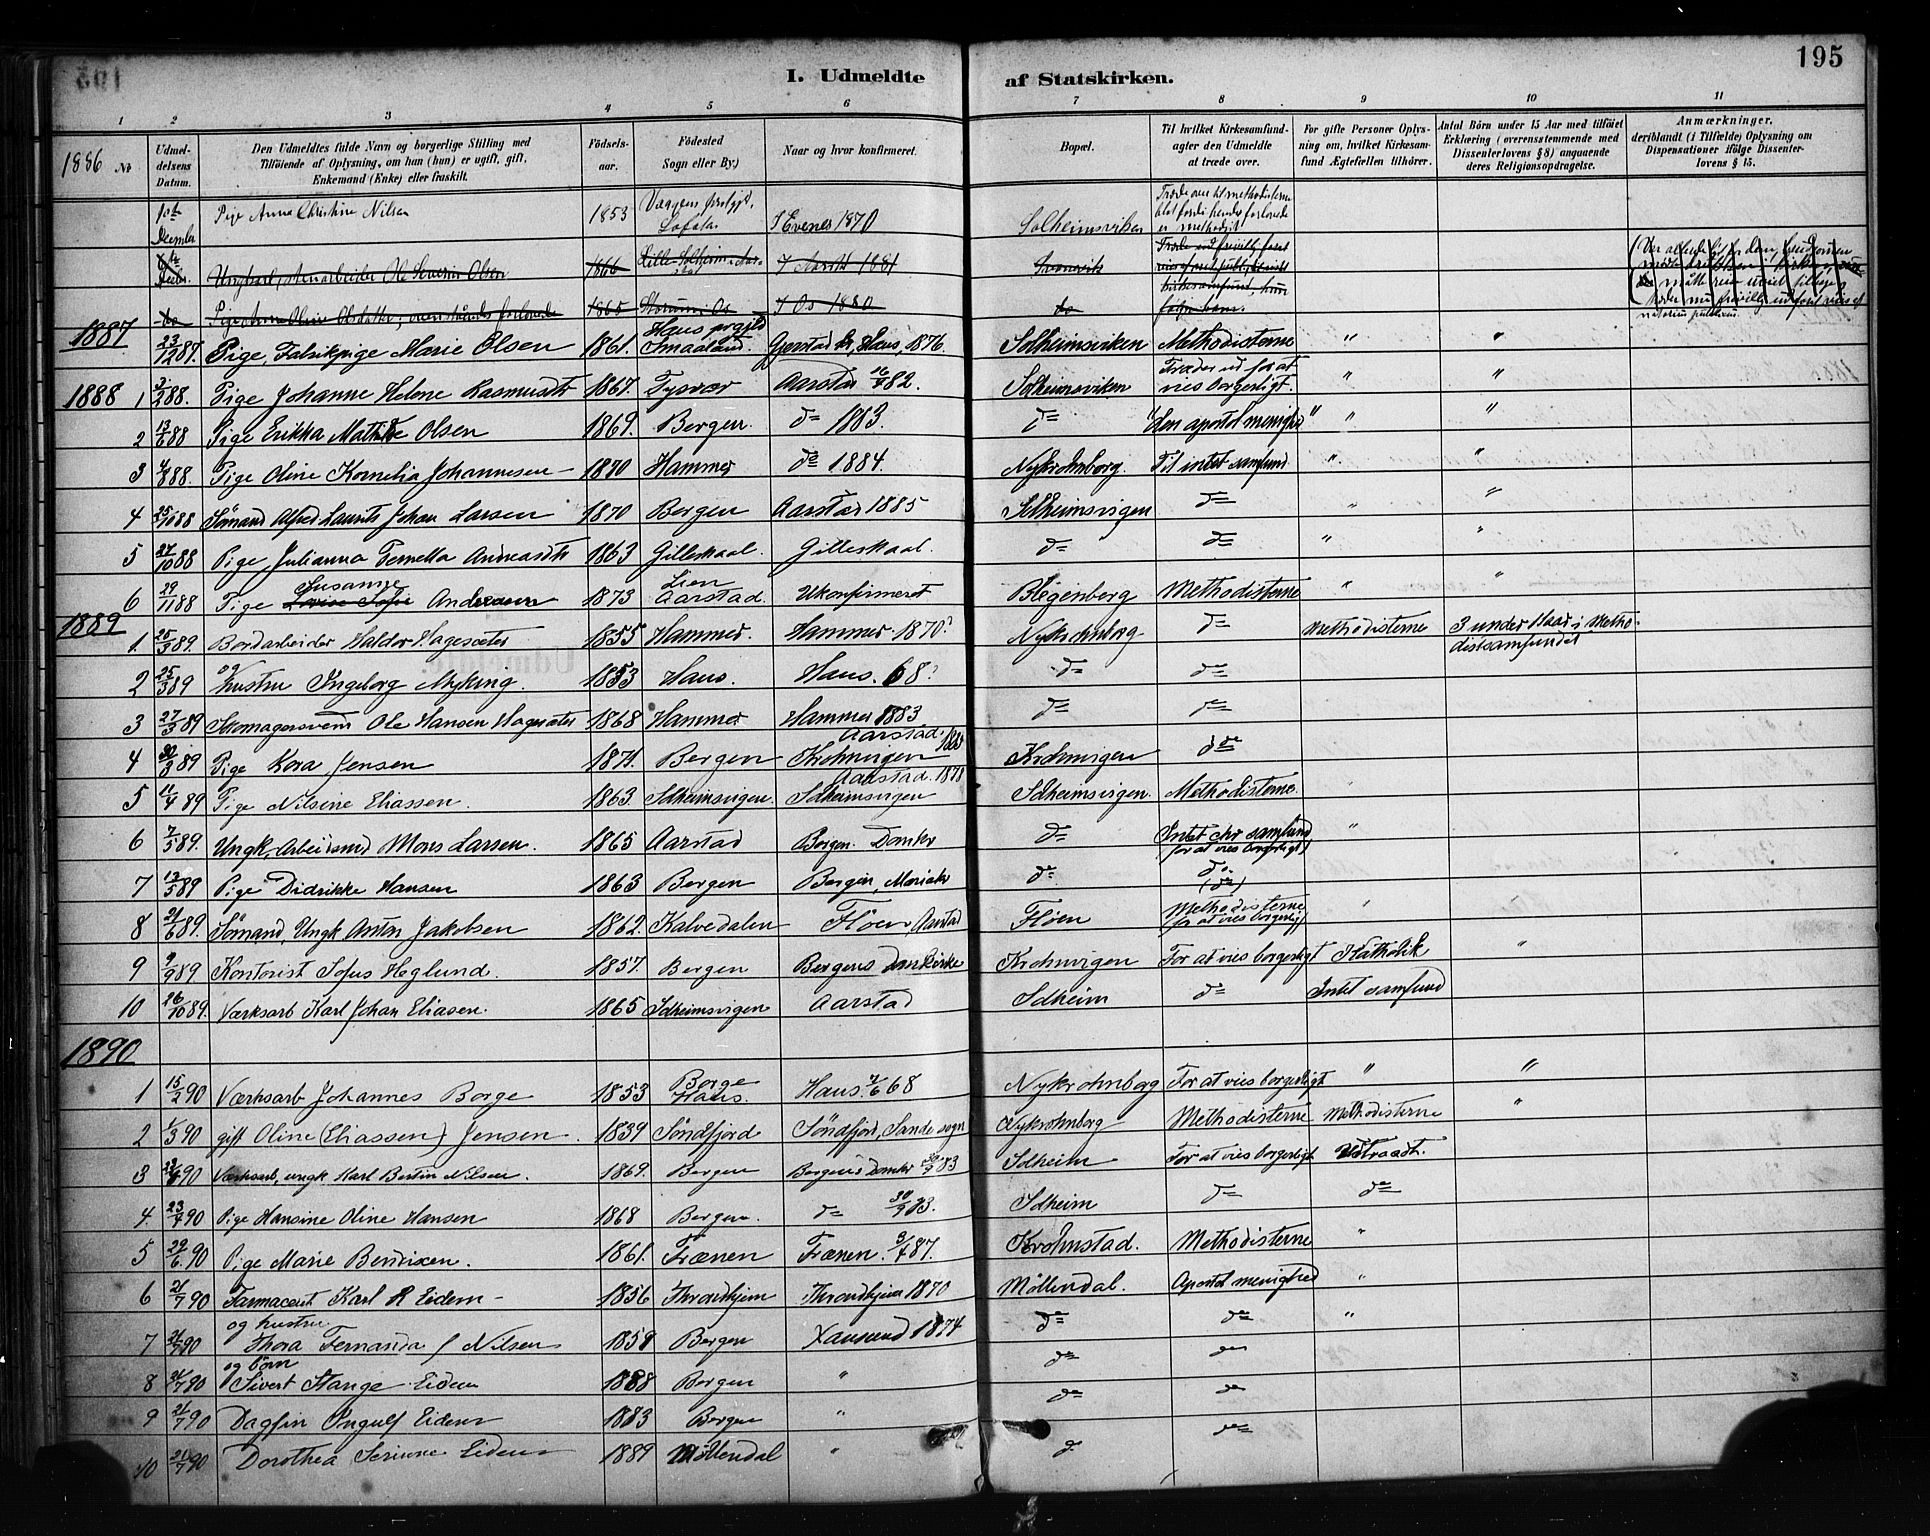 195
I. Udmeldte af Statskirken.
1 2 3 4 5 6 7 8 9 10 11
1886 No
Udmeldelsens Datum.
Den Udmeldtes fulde Navn og borgerlige Stilling med
Tilföiende af Oplysning, om han (hun) er ugift, gift,
Enkemand (Enke) eller fraskilt.
Födselsaar.
Födested
Sogn eller By)
Naar og hvor konfirmeret.
Bopæl.
Til hvilket Kirkesamfund-
agter den Udmeldte
at træde over.
For gifte Personer Oplys-
ning om, hvilket Kirkesam-
fund Ægtefællen tilhörer.
Antal Börn under 15 Aar med tilföiet
Erklæring (overensstemmende med
Dissenterlovens § 8) angaaende
deres Religionsopdragelse.
Anmærkninger,
deriblandt (i Tilfælde) Oplysning om
Dispensationer ifölge Dissenter-
lovens § 15.
Decmber Pige Anna Christine Nilsen 1853 Lofoten Evenes 1870 Solheimsviken Træde over til methodisterne blot fordi hendes forlovede er methodist
Decbr. Ungkarl, Stenarbeider Ole Severin Olsen 1866 Lille-Solheim-Aarstad I Aarstd 1881
do Pige Anna Oline Olsdatter, ovenståndes forlovede 1865 Os I Os 1880 do
1887
23/12 87. Pige, Fabrikpige Marie Olsen 1861. Haus prgjld Smaaland. Gjerstad k, Haus, 1876. Solheimsviken Methodisterne " "
1888 1 88. Pige Johanne Helene Rasmusdtr 1867. Tysvær Aarstad 82. Solheimsviken Træder ud for at vies borgerligt. " "
2 13/6 88 Pige Erikka Mathilde Olsen 1869. Bergen. do 1883. do "den apostol menighed" " "
3 88. Pige Oline Kornelia Johannesen 1870 Hammer do 1884. Nykrohnborg. Til intet samfund " "
4 25/10 88 Sömand Alfred Laurits Johan Larsen 1870 Bergen Aarstad 1885 Solheimsvigen do " "
5 27/10 88 Pige Julianna Pernella Andreasdtr 1863 Gilleskaal. Gilleskaal. do do " "
6 29/11 88 Pige Susanne Lovise Sofie Andersen 1873 Lien Aarstad. Ukonfirmeret Blegenberg Methodisterne " "
1889
1. 25/3 89. Bordarbeider Haldor Hagesæter 1855 Hammer. Hammer 1870? Nykrohnborg do Methodisterne 3 under 14 aar i Methodistsamfundet
2 25/3 89 og hustru Ingeborg Myking. 1853 Haus. Haus. 68? do do
3 27/3 89 Skomagersvend Ole Hansen Hagesæter 1868 Hammer Hammer 1883 do do
4 30/3 89 Pige Kora Jensen 1871. Bergen Krohnvigen Aarstad. Krohnvigen do
5 11/4 89 Pige Nilsine Eliassen. 1863. Solheimsvigen. Solheimsvigen Aarstad. 1878 Solheimsvigen. Methodisterne. "
6 7/5 89. Ungk, Arbeidsmd Mons Larsen. 1865 Aarstad Bergen. Domkr do Intet chr samfund (for at vies borgerligt) "
7 13/5 89 Pige Didrikke Hansen 1863 Bergen Bergen, Mariekr do do (do)
8 21/6 89. Sömand, Ungk Anton Jakobsen 1862. Kalvedalen Flöen, Aarstad Flöen Methodisterne (for at vies borgerligt) "
9 9/9 89 Kontorist Sofus Heglund. 1857. Bergen Bergens Domkirke Krohnvigen For at vies borgerligt Katholik "
10 16/10 89. Værksarb Karl Johan Eliasen. 1865 Solheimsvigen Aarstad Solheim do Intet samfund
1890
1 15/2 90 Værksarb Johannes Borge 1853 Borge Haus. Haus. 68 Nykrohnborg For at vies borgerligt " "
2 1/3 90 gift Oline (Eliassen) Jensen. 1839 Söndfjord Söndfjord, Sande sogn Nykrohnborg Methodisterne Methodisterne "
3 90 Værksarb, ungk Karl Bertin Nilsen. 1869. Bergen Bergens Domkr 83 Solheim For at vies borgerligt Udtraadt.
4. 23/4 90 Pige Hansine Oline Hansen 1868 Bergen. do 30/9 83. Solheim do do
5 29/6 90 Pige Marie Bendixen. 1861. Frænen Frænen. 87. Krohnstad. Methodisterne "
6 21/7 90 Farmaceut Karl R Eidem 1856 Throndhjem Throndhjem 1870 Möllendal. Apostol menighed "
7 21/7 90 og hustru Thora Fernanda f Nilsen 1858 Bergen Xansund 1874 do do "
8 21/7 90 og börn Sivert Stange Eidem 1888 Bergen " do do
9 21/7 90 Dagfin Ingulf Eidem 1883 Bergen " do do
10 21/7 90 Dorothea Eidem 1889 Möllendal " do do